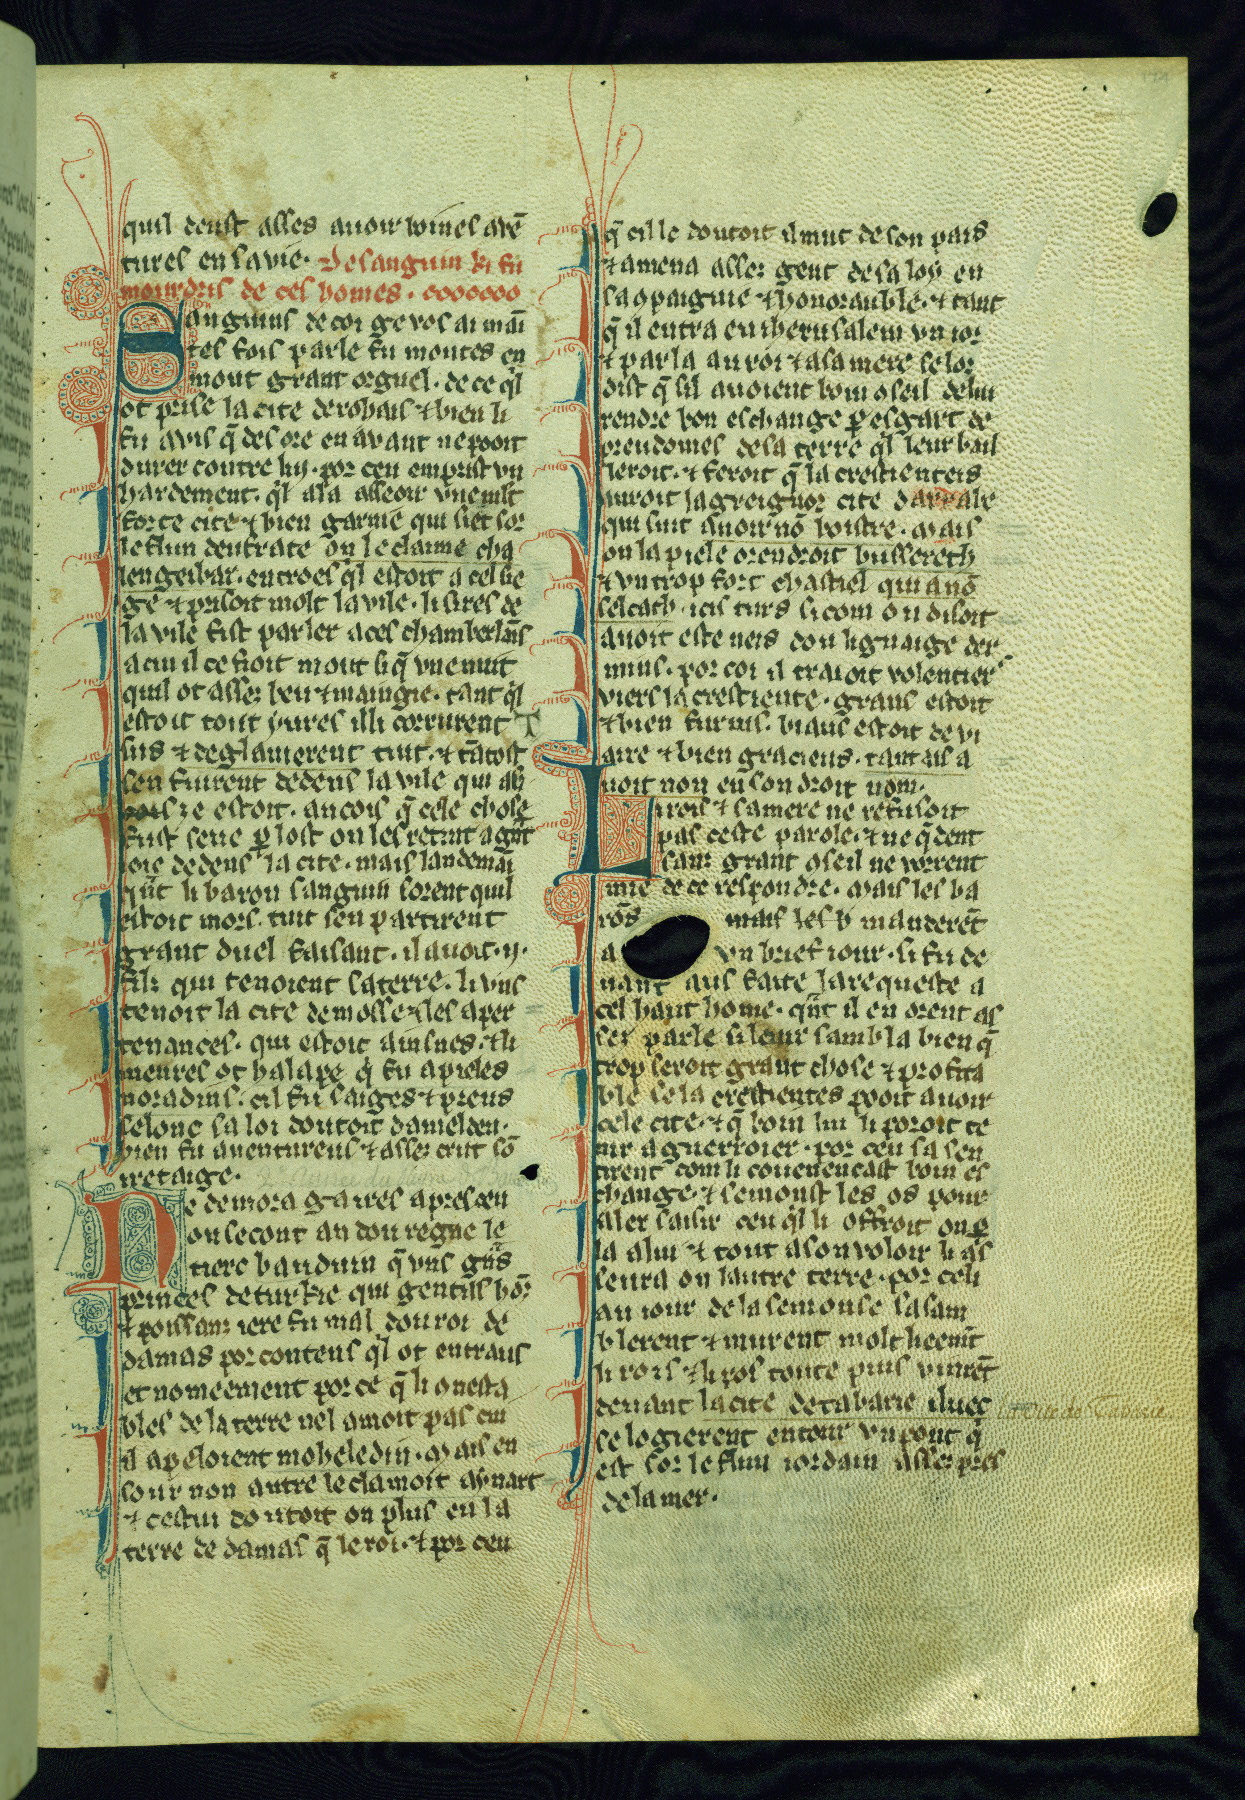 quil deust asses auoir bones auẽ
tures en sa vie. De sanguin ki fu
mourdris de ces homes.
Sanguins de coi ge vos ai mai
tes fois parle fu montes en
mout grant orguel. de ce ql
ot prise la cite de rohais et bien li
fu avis q̃ des ore en avant ne pooit
durer contre luy. por ceu emprist vn
hardement. ql ala asseoir vne mlt
forte cite et bien garnie qui siet sor
le flun deufrate on le claime cha
lengeibar. entroes ql estoit a cel sie
ge et prisoit molt la vile. li sires de
la vile fist parler a ces chamberlãs
a cui il ce fioit mout si q̃ vne nuit
quil ot assez beu et maingie. tant ql
estoit tout yures illi corrurent
sus et deglaiuerent tuit. et tãtost
sen fuirent dedens la vile qui
estoit. ancois q̃ cele chose
fust seue p lost on les recuit a grãt
ioie dedens la cite. mais landemaĩ
qñt li baron sanguin sorent quil
estoit mors. tuit sen partirent
grant duel faisant. il auoit .ij.
filz qui tenoient sa terre. li vns
tenoit la cite de mosse et les aper
tenances. qui estoit ainsnes. et li
menres ot halape q fu apieles
noradins. cil fu saiges et preus
selonc sa loi doutoit dameldeu.
bien fu auentureus et assez crut sõ
iretaige.
Ne demora gaires apres ceu
ou secont an dou regne le
tiers bauduin q̃ vns grãs
princes de turkie qui gentis hõz
et poissanz iere fu mal dou roi de
damas por contens ql ot entraus
et nomeement por ce q̃ li conesta
bles de la terre nel amoit pas cui
il apeloient moheledin. mais en
sour non autre le clamoit aynart
et cestui doutoit on plus en la
terre de damas q̃ le roi. et por ceu
q̃ cil le doutoit il mut de son pais
et amena assez gent de sa loy en
sa cpaignie et honorauble. et tant
q̃ il entra en iherusalem vn ior
et parla au roi et a sa mere se lor
dist q̃ sil auoient boin cseil de lui
rendre bon eschange p esgart de
preudomes de sa terre ql leur bail
leroit. et feroit q̃ la crestienteis
auroit la greignor cite darrabe
qui suit auoir nõ bostre. mais
on lapiele orendroit bussereth
et vn trop fort chastiel qui a nõ
selcath. icis turs si com on disoit
auoit este neis dou lignaige der
mins. por coi il traioit volentier
viers la crestiente. grans estoit
et bien furnis. biaus estoit de vi
aire et bien gracieus. tantais a
uoit non en son droit nom.
Li rois et sa mere ne refusoit
pas ceste parole. et ne q̃dent
sanz grant cseil ne vorrent
mie de ce respondre. mais les ba
rõs mais les b manderẽt
a vn brief iour. si fu de
uant aus faite la requeste a
cel haut home. qñt il en orent as
sez parle si leur sambla bien q̃
trop seroit grant chose et profita
ble se la crestientes pooit auoir
cele cite. et q̃ boin lui li poroit te
nir a guerroier. por ceu sa sen
tirent com li couenencast boin es
change. et semonst les os pour
aler saisir ceu ql li offroit ou p
la alui et tout a son voloir li as
seura on lautre terre. por celi
au iour de la semonse sasam
blerent et murent molt
li rois et li pos toute puis vinrẽt
deuant la cite de tabarie iluec
se logierent entour vn pont q̃
est sor le flun iordain assez pres
de la mer.
la Cité de Tabarie